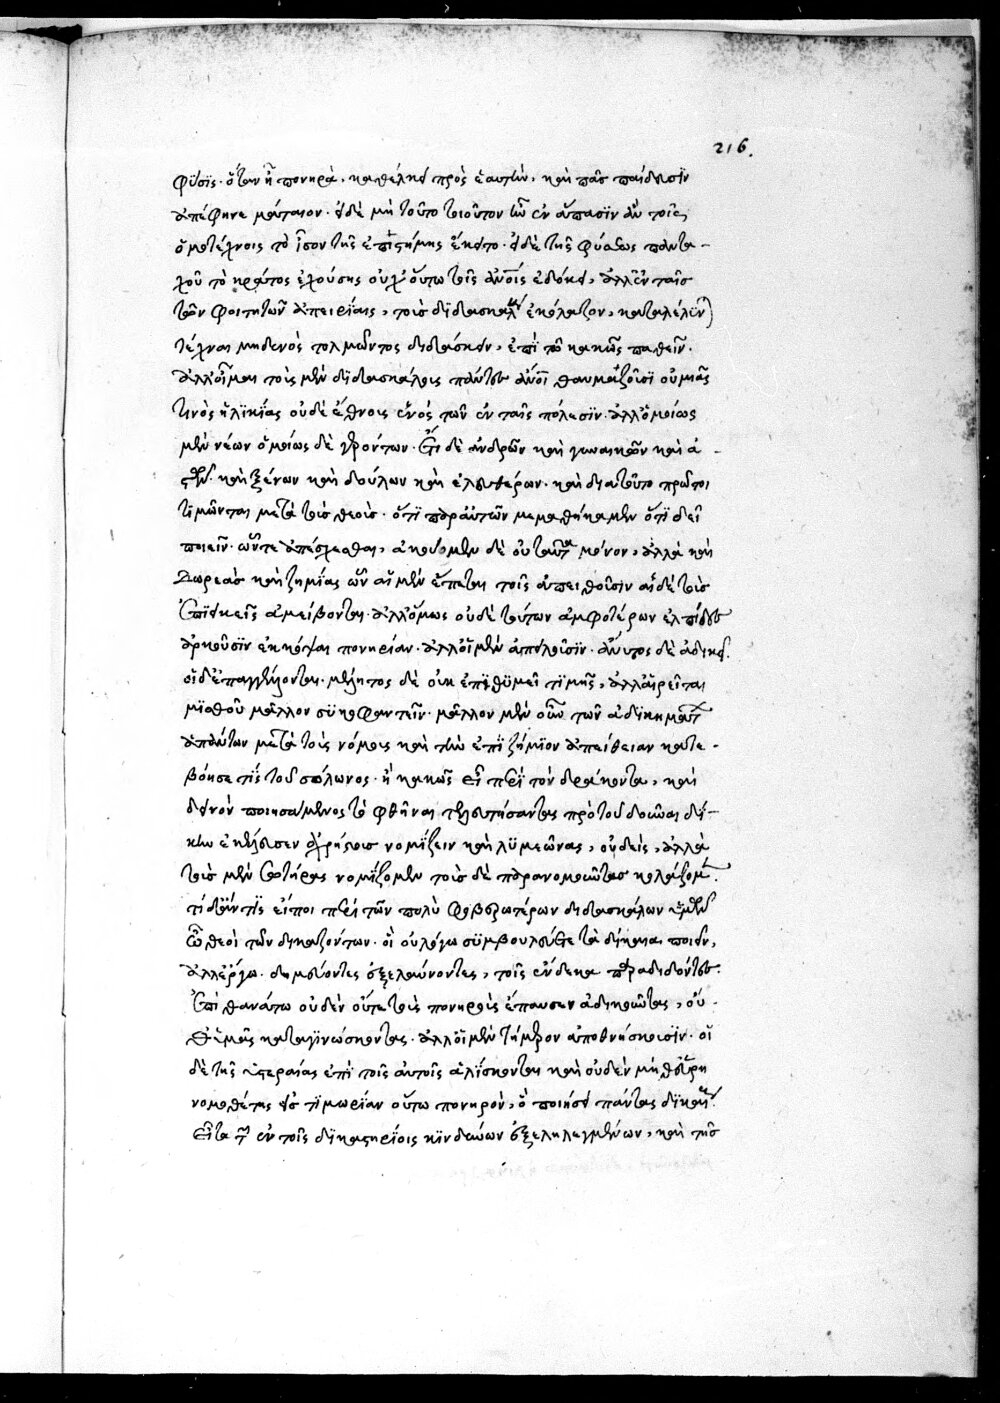 216.
φύσις· ὅταν ᾖ πονηρὰ, καθέλκει πρὸς ἑαυτὴν, καὶ πᾶσαν παίδευσιν
ἀπέφηνε μάταιον. εἰ δὲ μὴ τοῦτο τοιοῦτον ἦν ἐν ἅπασιν ἂν τοῖς
ὁμοτέχνοις τὸ ἴσον τῆς ἐπιστήμης ἕκειτο. εἰ δὲ τῆς φύσεως παντα-
χοῦ τὸ κράτος ἐχούσης οὐχ' οὕτω τοῖς ἀνοις ἐδόκει, ἀλλ' ἐν ταῖς
τῶν φοιτητῶν ἀπειρίαις, τοὺς διδασκάλους ἐκόλαζον,
τέχναι μηδενὸς τολμῶντος διδάσκειν, ἐπὶ τῷ κακῶς παθεῖν.
ἀλλ' οἶμαι τοὺς μὲν διδασκάλους πάντες ἄνοι θαυμάζουσι οὐ μιᾶς
τινὸς ἡλικίας οὐδὲ ἔθνους ἑνὸς τῶν ἐν ταῖς πόλεσιν. ἀλλ' ὁμοίως
μὲν νέων ὁμοίως δὲ γερόντων. ἔτι δὲ ἀνδρῶν καὶ γυναικῶν καὶ ἀ-
στῶν. καὶ ξένων καὶ δούλων καὶ ἐλευθέρων. καὶ διατοῦτο πρῶτοι
τιμῶνται μετὰ τοὺς θεοὺς. ὅτι παρ' αὐτῶν μεμαθήκαμεν ὅτι δεῖ
ποιεῖν. ὧν τε ἀπέχεσθαι, ἀκούομεν δὲ οὐ ταῦτα μόνον, ἀλλὰ καὶ
δωρεὰς καὶ ζημίας ὧν αἱ μὲν ἕπεται τοῖς ἀπειθοῦσιν αἱ δὲ τοὺς
ἐπιεικεῖς ἀμείβονται. ἀλλ' ὅμως οὐδὲ τούτων ἀμφοτέρων ἐλπίδες
ἀρκοῦσιν ἐκκόψαι πονηρίαν. ἀλλ' οἱ μὲν ἀπειλοῦσιν. ἄνυτος δὲ ἀδικεῖ.
οἱ δ' ἐπαγγέλλονται. μέλητος δὲ οὐκ ἐπιθυμεῖ τιμῆς, ἀλλ' αἱρεῖται
μισθοῦ μᾶλλον συκοφαντεῖν. μᾶλλον μὲν οὖν τῶν ἀδικημάτων
ἁπάντων μετὰ τοὺς νόμους καὶ τὴν ἐπιζήμιον ἀπείθειαν κατε-
βόησε τίς τοῦ σόλωνος. ἢ κακῶς εἶπε περὶ τὸν δράκοντα, καὶ
δεινὸν ποιησάμενος τὸ φθῆναι τελευτήσαντας πρὸ τοῦ δοῦναι δί-
κην ἐκέλευσεν ἀχρήστους νομίζειν καὶ λυμεῶνας, οὐδεὶς, ἀλλὰ
τοὺς μὲν σωτῆρας νομίζομεν τοὺς δὲ παρανομοῦντας κολάζομεν.
τί δ' ἄν τις εἴποι περὶ τῶν πολὺ φοβερωτέρων διδασκάλων ὑμῶν
ὦ θεοὶ τῶν δικαζόντων. οἳ οὐ λόγω συμβουλεύετε τὰ δίκαια ποιεῖν,
ἀλλ' ἔργω. δημεύοντες ἐξελαύνοντες, τοῖς ἕνδεκα παραδιδόντες.
ἐπὶ θανάτω οὐδὲν οὔτε τοὺς πονηροὺς ἔπαυσεν ἀδικοῦντας, οὐ-
θ' ὑμᾶς καταγινώσκοντας. ἀλλ' οἱ μὲν τήμερον ἀποθνήσκουσιν. οἱ
δὲ τῆς ὑστεραίας ἐπὶ τοῖς αὐτοῖς ἁλίσκονται καὶ οὐδὲν μὴ εὕρη
νομοθέτης εἰς τιμωρίαν οὕτω πονηρὸν, ὃ ποιήσει πάντας δικαίους.
εἶτα τῶν ἐν τοῖς δικαστηρίοις κινδύνων ἐξεληλεγμένων, καὶ τῆς